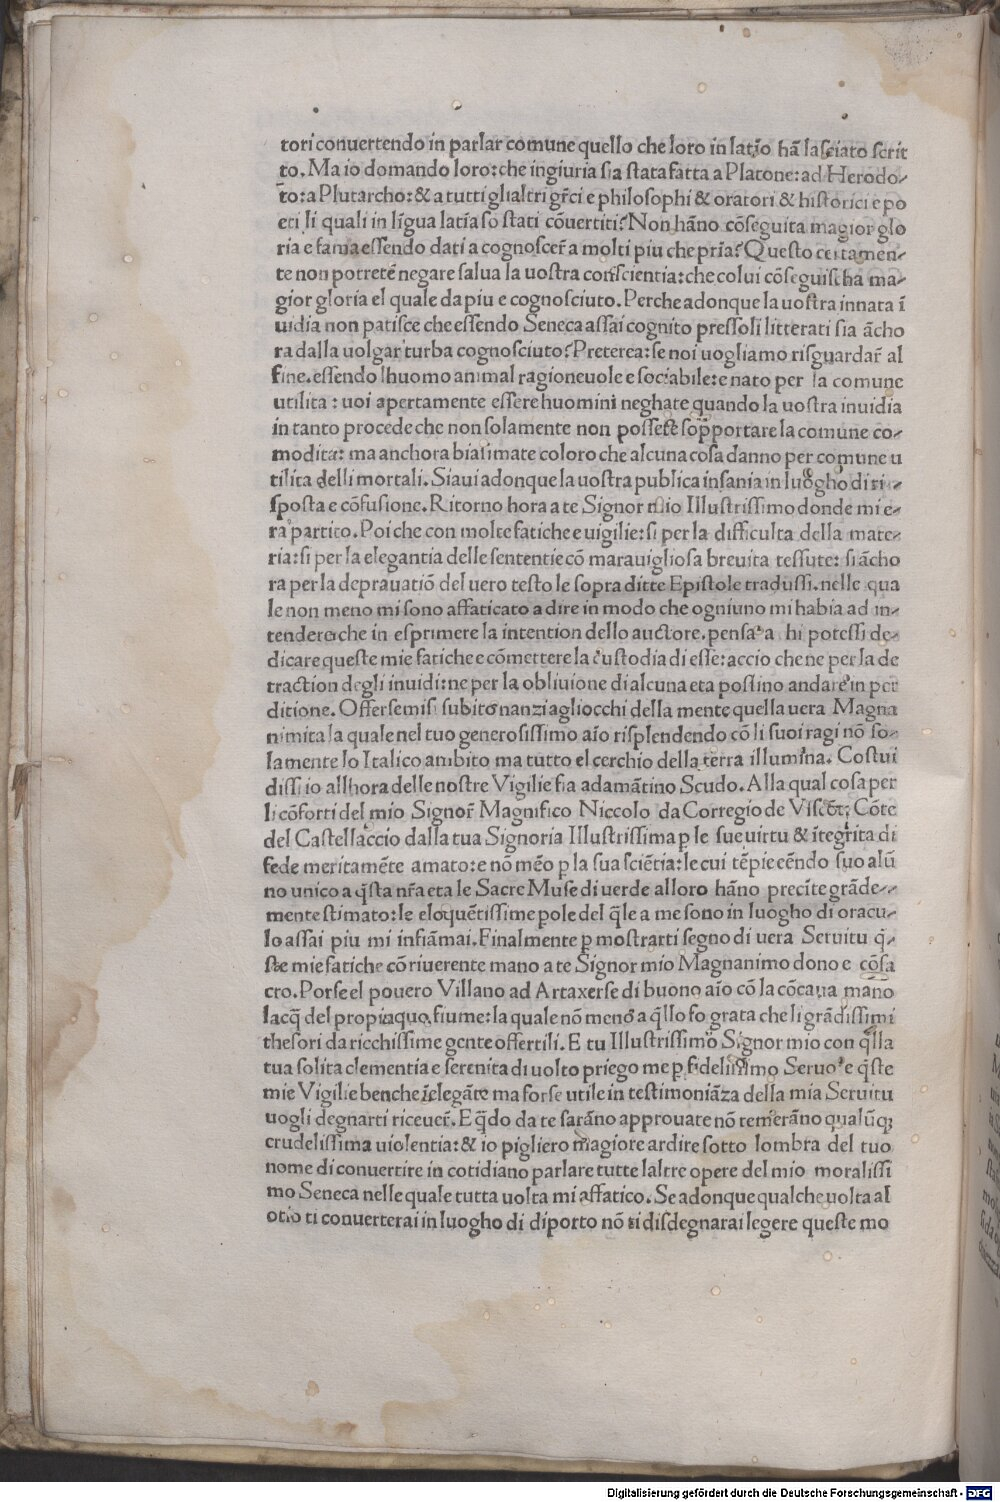 tori conuertendo in parlar comune quello che loro in latio hã lasciato scrit
to. Ma io domando loro: che ingiuria sia stata fatta a Platone: ad Herodo-
to: a Plutarcho: & a tutti glialtri gr̃ci e philosophi & oratori & historici e po
eti li quali in lĩgua latĩa so stati cõuertiti? Non hãno cõseguita magior glo
ria e fama essendo dati a cognoscer̃ a molti piu che prĩa? Questo certamen-
te non potretẽ negare salua la uostra conscientia: che colui cõseguischa ma-
gior gloria el quale da piu e cognosciuto. Perche adonque la uostra innata ĩ
uidia non patisce che essendo Seneca assai cognito presso li litterati sia ãcho
ra dalla uolgar turba cognosciuto? Preterea: se noi uogliamo risguardar̃ al
fine. essendo lhuomo animal ragioneuole e sociabile: e nato per la comune
utilita: uoi apertamente essere huomini neghate quando la uostra inuidia
in tanto procede che non solamente non possete sop̃portare la comune co-
modita: ma anchora biasimate coloro che alcuna cosa danno per comune u
tilita delli mortali. Siaui adonque la uostra publica insania in luogho di ri-
sposta e cõfusione. Ritorno hora a te Signor mio Illustrissimo donde mi e-
ra partito. Poi che con molte fatiche e uigilie: si per la difficulta della mate-
ria: si per la elegantia delle sententie cõ marauigliosa breuita tessute: si ãcho
ra per la deprauatiõ del uero testo le sopra ditte Epistole tradussi. nelle qua
le non meno mi sono affaticato a dire in modo che ogniuno mi habia ad in-
tendere: che in esprimere la intention dello auctore. pensaua hi potessi de-
dicare queste mie fatiche e cõmettere la custodia di esse: accio che ne per la de
traction degli inuidi: ne per la obliuione di alcuna eta possino andare in per
ditione. Offersemisi subito nanzi agliocchi della mente quella uera Magna
nimita la quale nel tuo generosissimo aĩo risplendendo cõ li suoi ragi nõ so-
lamente lo Italico ambito ma tutto el cerchio della terra illumina. Costui
dissi io allhora delle nostre Vigilie fia adamãtino Scudo. Alla qual cosa per
li cõforti del mio Signor̃ Magnifico Niccolo da Corregio de Viscõt; Cõte
del Castellaccio dalla tua Signoria Illustrissima p le sue uirtu & ĩtegrita di
fede meritamẽte amato: e nõ mẽo p la sua sciẽtia: le cui tẽpie cẽndo suo alũ
no unico a q̃sta nr̃a eta le Sacre Muse di uerde alloro hãno precite grãde-
mente stimato: le eloquẽtissime pole del q̃le a me sono in luogho di oracu-
lo assai piu mi infiãmai. Finalmente p mostrarti segno di uera Seruitu q̃-
ste mie fatiche cõ riuerente mano a te Signor mio Magnanimo dono e cõsa
cro. Porse el pouero Villano ad Artaxerse di buono aĩo cõ la cõcaua mano
lacq̃ del propiaquo fiume: la quale nõ meno a q̃llo fo grata che li grãdissimi
thesori da ricchissime gente offertili. E tu Illustrissimo Signor mio con q̃lla
tua solita clementia e serenita di uolto priego me p fidelissimo Seruo e q̃ste
mie Vigilie benche ĩelegãte ma forse utile in testimoniãza della mia Seruitu
uogli degnarti riceuer̃. E q̃do da te sarãno approuate nõ temerãno qualũq;
crudelissima uiolentia: & io pigliero magiore ardire sotto lombra del tuo
nome di conuertire in cotidiano parlare tutte laltre opere del mio moralissi
mo Seneca nelle quale tutta uolta mi affatico. Se adonque qualche uolta al
otio ti conuerterai in luogho di diporto nõ ti disdegnarai legere queste mo
Digitalisierung gefördert durch die Deutsche Forschungsgemeinschaft - DFG